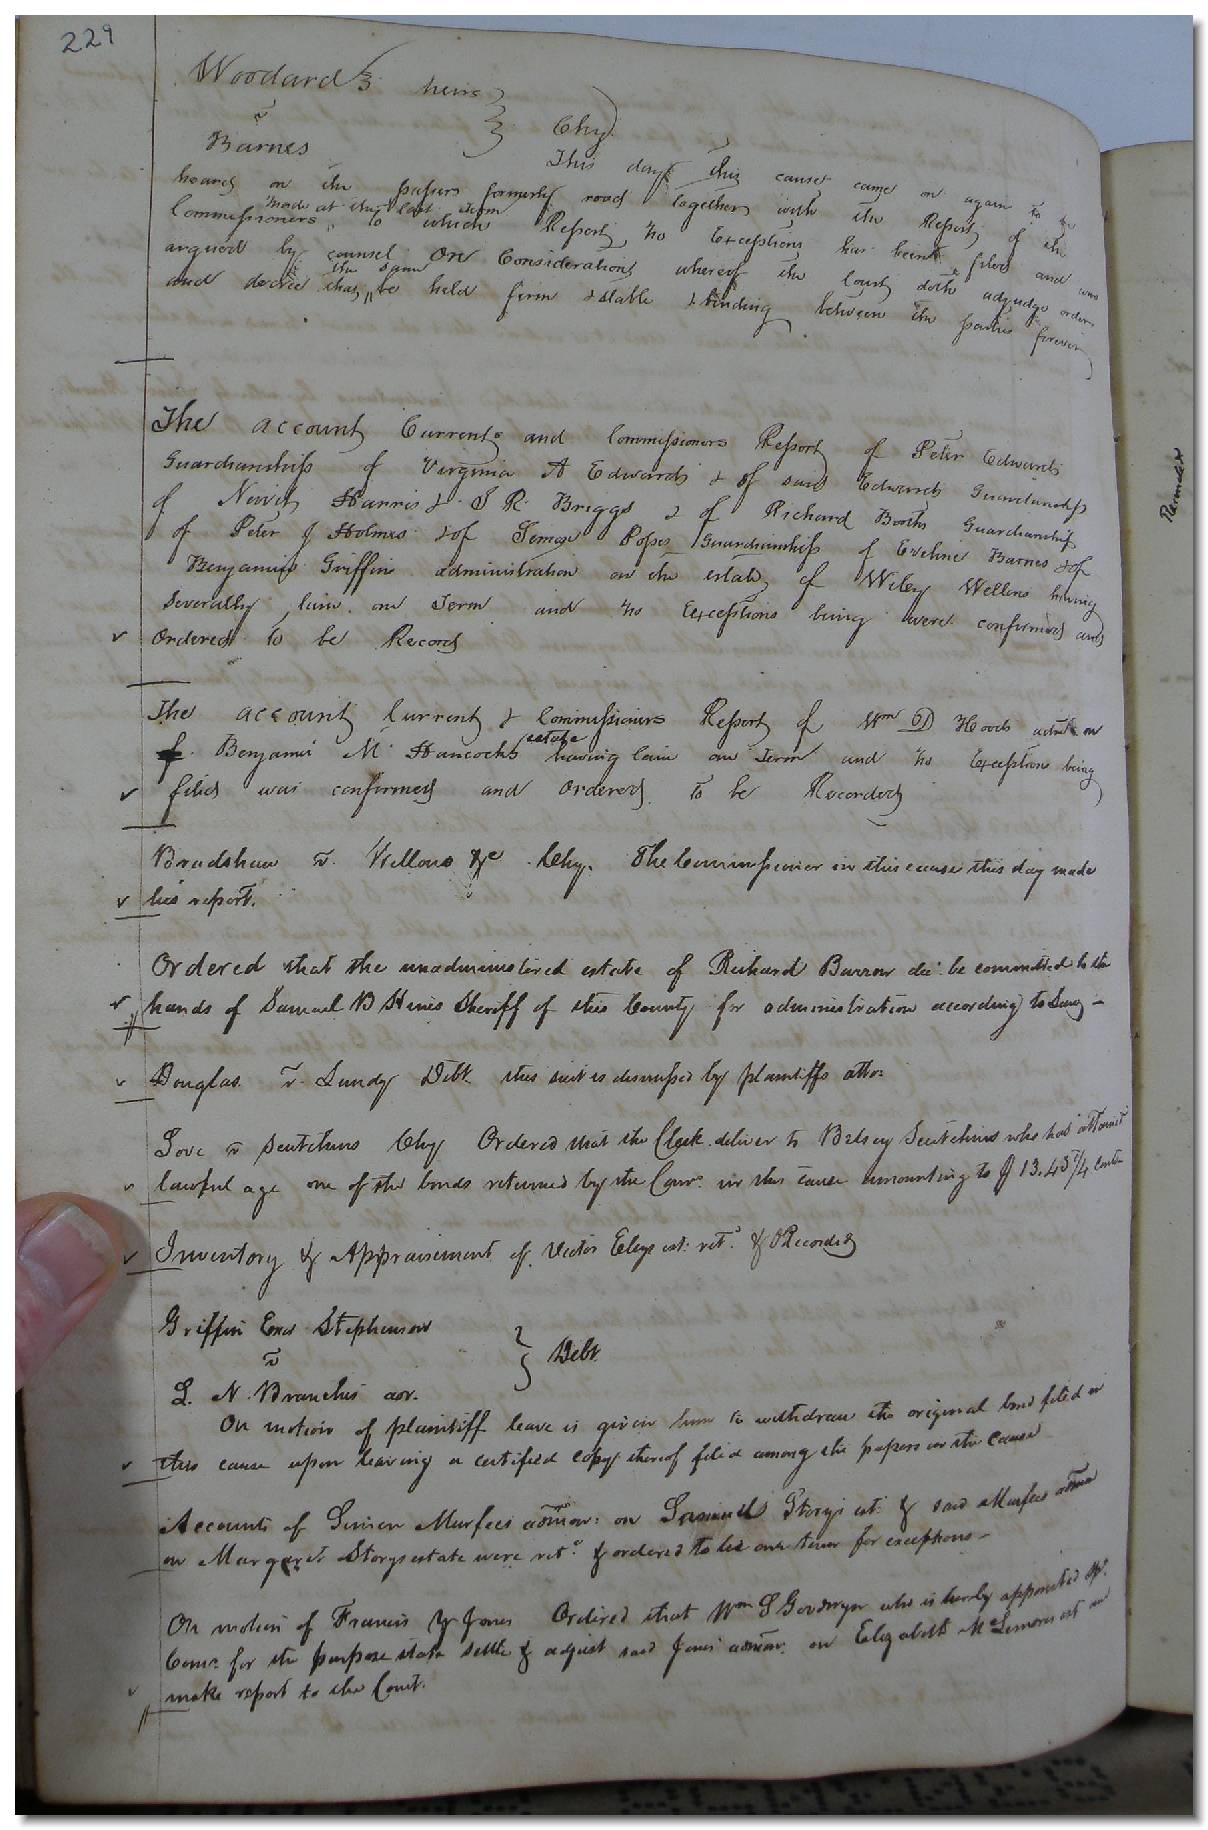 229
Woodards heirs
v
Barnes } Chy
This day this cause came on again to be
heard on the papers formerly read together with the Report of the
made at the last Term
Commissioners to which Report no Exceptions has been filed and was
argued by counsel On Consideration whereof the Court doth adjudge order
the same
and decree that be held firm & stable & binding between the parties forever
The account Currents and Commissioners Report of Peter Edwards
Guardianship of Virginia A Edwards & of said Edwards Guardianship
of Newit Harris & J R Briggs & of Richard Booths Guardianship
of Peter J Holmes & of Posers Guardianship of Eveline Barnes & of
Benjamin Griffin administration on the estate of Wiley Wellons having
Severally lain one Term and no Exceptions being were confirmed and
Ordered to be Record
The account Current & Commissioners Report of Wm D Hoods admr on
estate
Benjamin M Hancocks having lain one Term and no Exception being
filed was confirmed and Ordered to be Recorded
Bradshaw v. Wellons &c Chy. The Commissioner in this cause this day made
his report.
Ordered that the unadministered estate of Richard Barrow dec. be committed to the
hands of Samuel B Hines Sheriff of this County for administration according to Law -
Douglas v. Lundy Debt this suit is dismissed by plaintiffs atto.
Love v Scutchins Chy Ordered that the Clerk deliver to Betsey Scutchins who has attained
lawful age one of the bonds returned by the Comr. in this cause amounting to $ 13.43 3/4 cents
Inventory & Appraisement of Victor Eleys est. retd. & ORecorded
Griffin Exor Stephenson
v } Debt
L. N. Branchs aor.
On motion of plaintiff leave is given him to withdraw the original bond filed in
this cause upon leaving a certified copy thereof filed among the papers in the cause
Accounts of Simon Murfees admon: on Samuel Storys est. & said Murfees admon
on Margaret Storys estate were retd. & ordered to lie one term for exceptions -
On motion of Francis Jones Ordered that Wm S Goodwyn who is hereby appointed
Comr for the purpose state settle & adjust said Jones admon. on Elizabeth McLemores est and
make report to the Court.
Remder